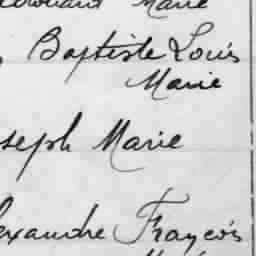 Marie
Baptiste Louis
Marie
seph Marie
exandre Françcois